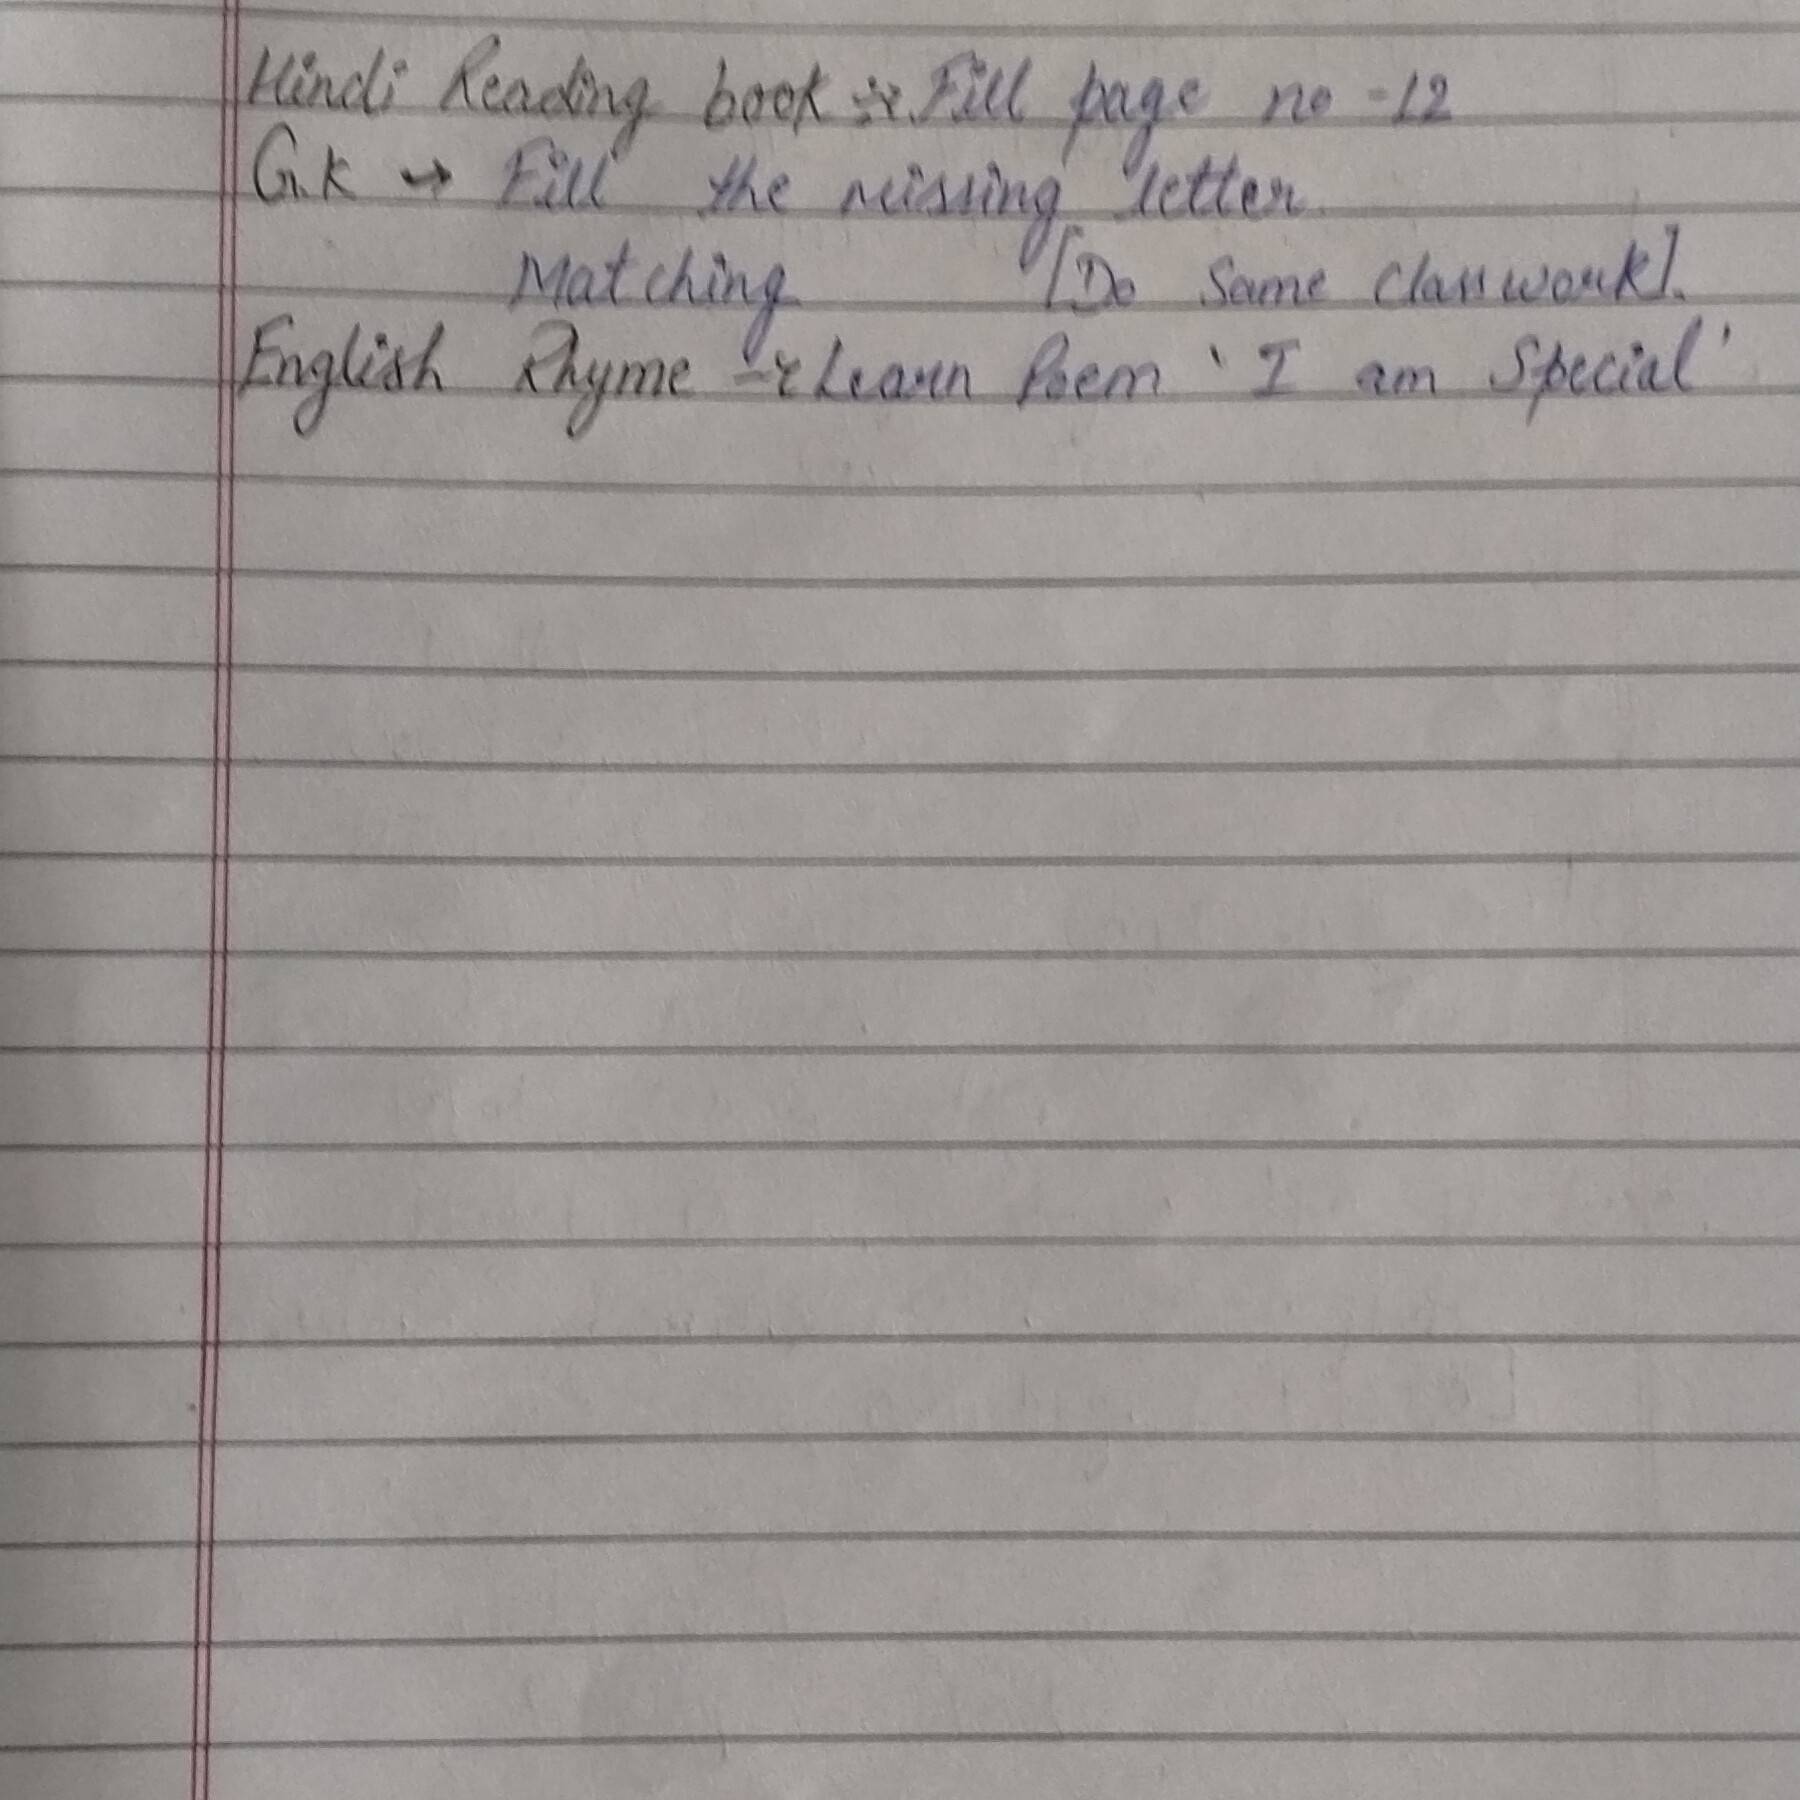 Hindi Reading book :→ Fill page no -12
G.K → Fill the missing letter
Matching [Do Same classwork].
English Rhyme → Learn Poem 'I am Special'